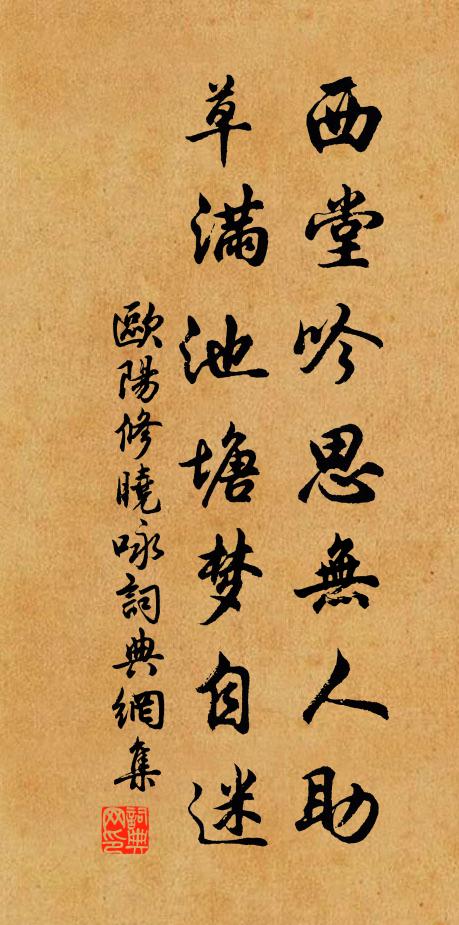 西堂吟思無人助
草滿池塘梦自迷
歐陽修曉咏詞典網集
詞典网印